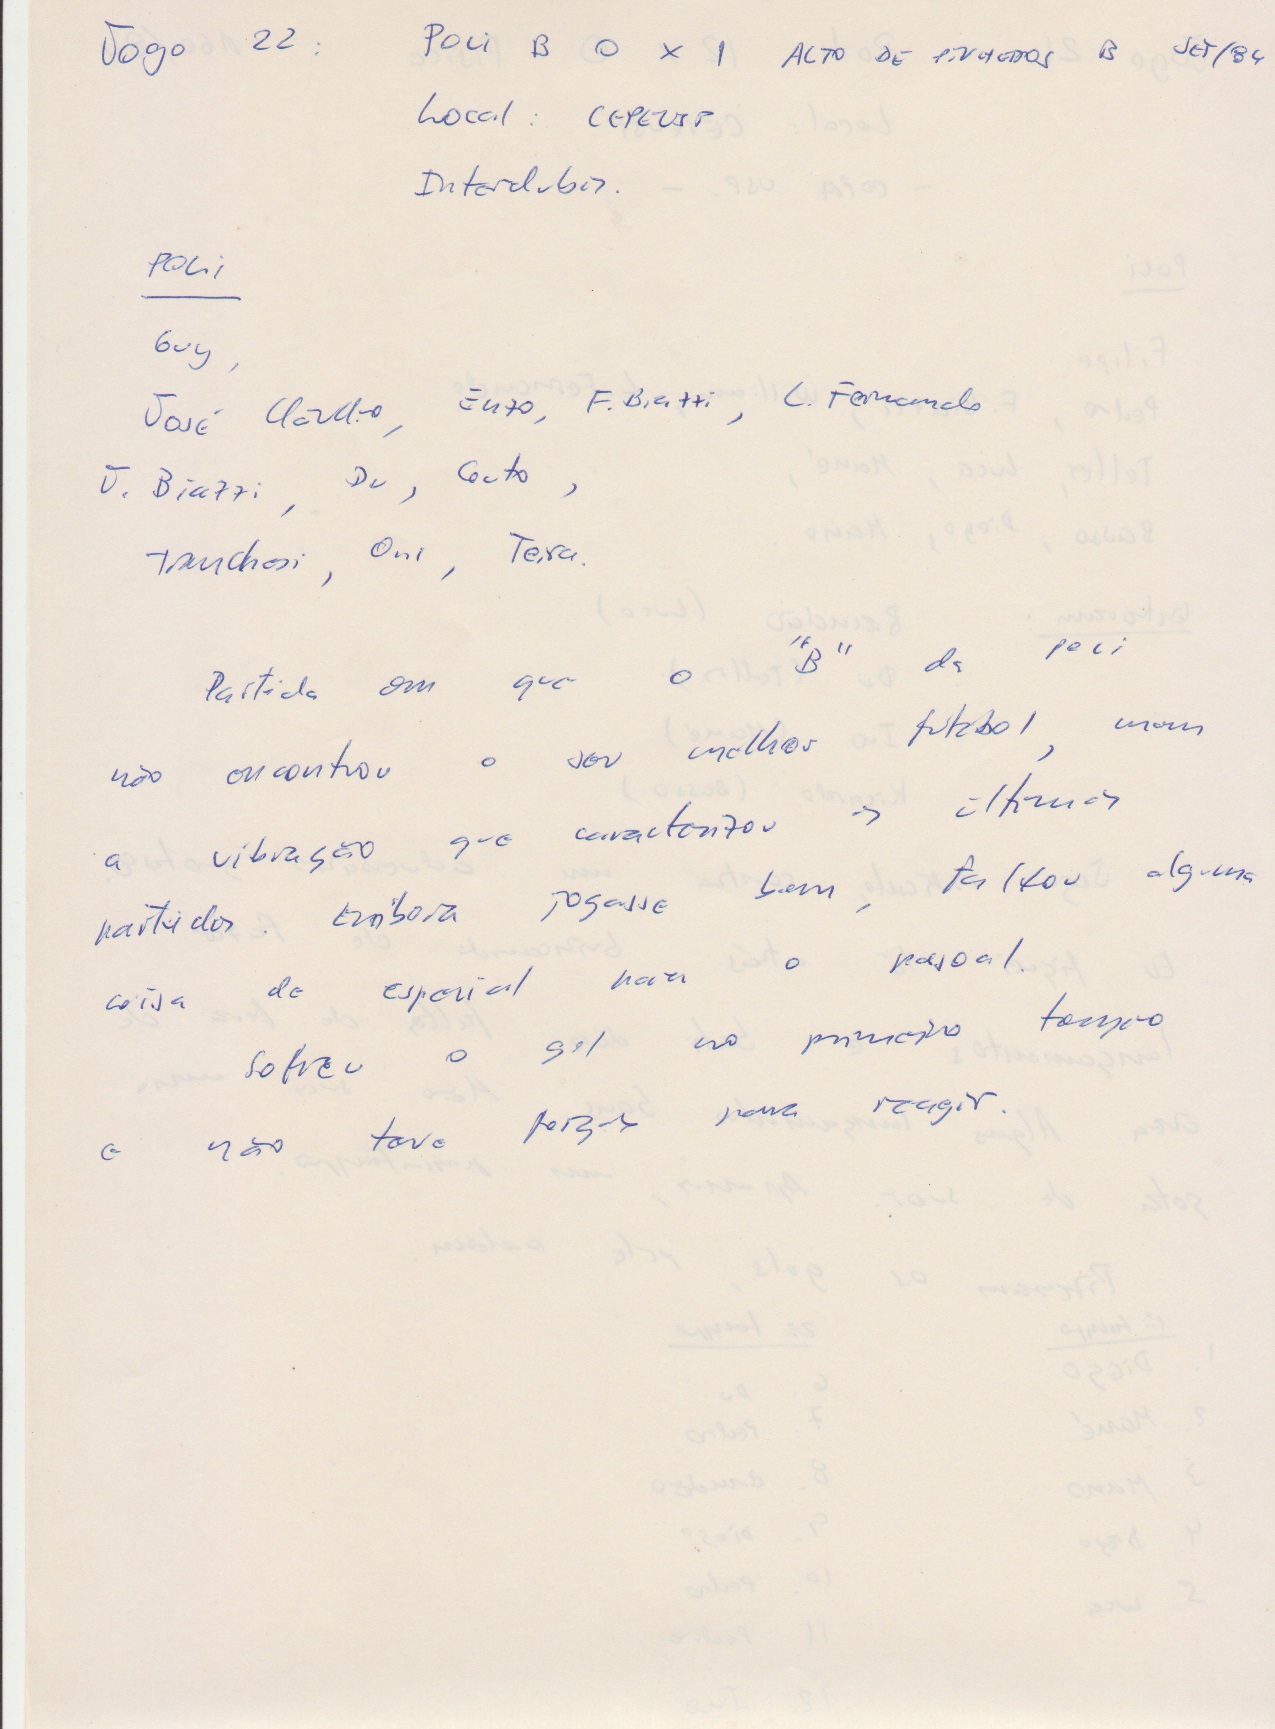 Jogo 22: POLI B 0 x 1 ALTO DE PINHEIROS B SET/84
Local: CEPEUSP
Interclubes.
POLI
Guy,
José Cláudio, Enzo, F. Biazzi, L. Fernando
J. Biazzi, Du, Couto,
Tranchesi, Oni, Teixa.
Partida em que o "B" da poli
não encontrou o seu melhor futebol, nem
a vibração que caracterizou as últimas
partidas. Embora jogasse bem, faltou alguma
coisa de especial para o pessoal.
Sofreu o gol no primeiro tempo
e não teve forças para reagir.